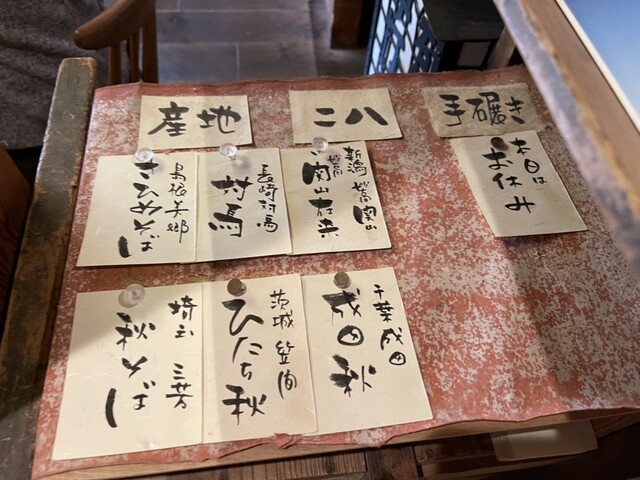 産地
二八
手碾き
島根美郷
さひめそば
長崎対馬
対馬
新潟 妙高 関山
妙高
関山在来
本日は
お休み
埼玉 三芳
秋そば
茨城 笠間
ひたち秋
千葉成田
成田秋